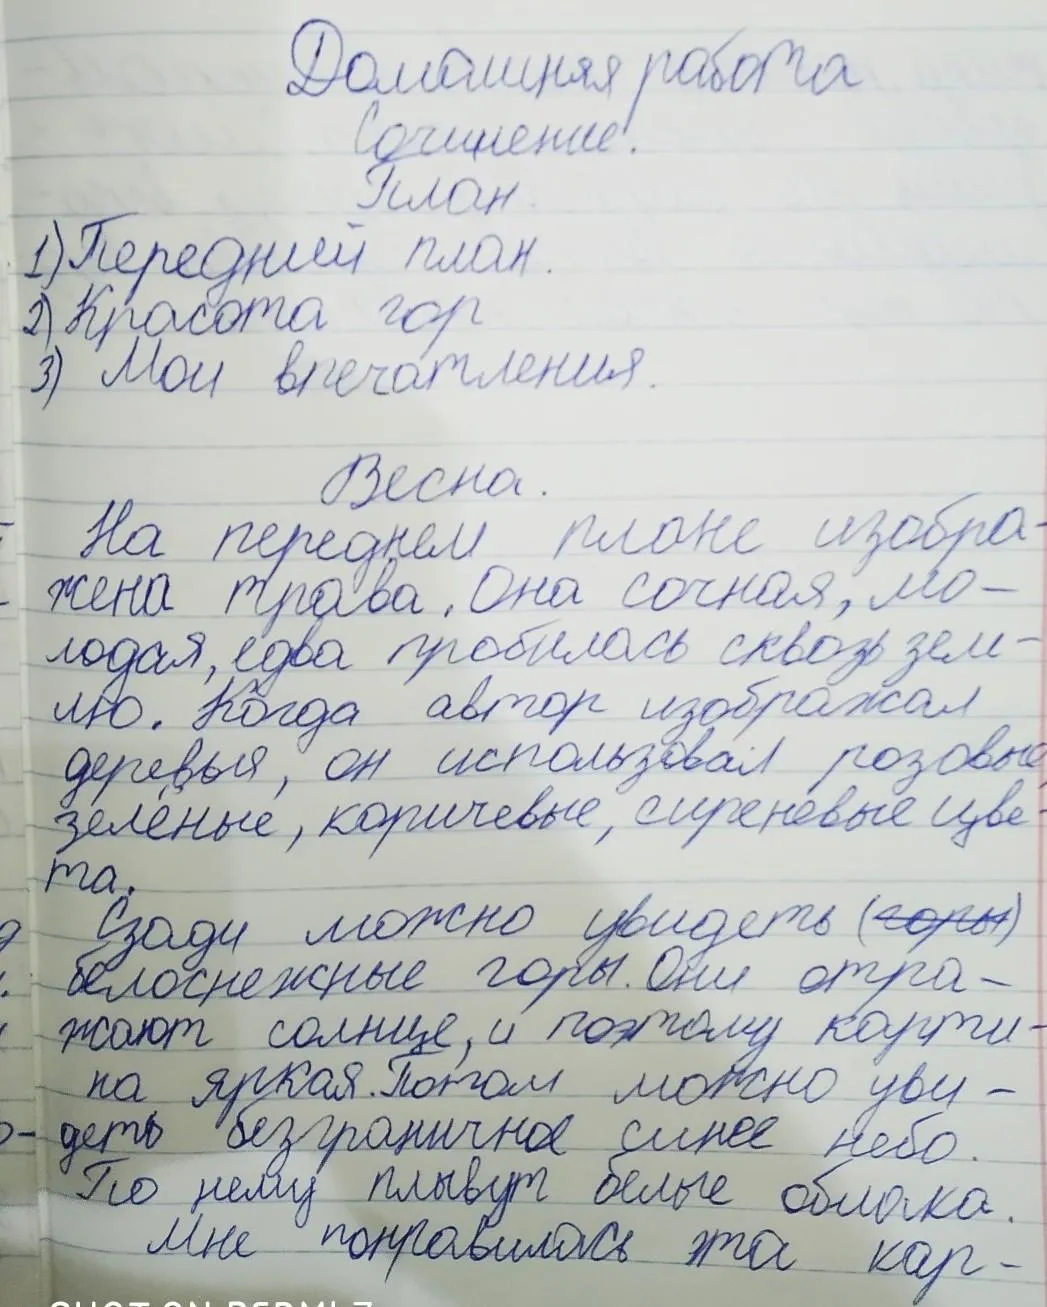 Домашняя работа
Сочинение.
План.
1) Передний план.
2) Красота гор
3) Мои впечатления.
Весна.
На переднем плане изобра-
жена трава. Она сочная, мо-
лодая, едва пробилась сквозь зем-
лю. Когда автор изображал
деревья, он использовал розовые,
зелёные, коричевые, сиреневые цве-
та.
Сзади можно увидеть (горы)
белоснежные горы. Они отра-
жают солнце, и поэтому карти-
на яркая. Потом можно уви-
деть безграничное синее небо.
По нему плывут белые облака.
Мне понравилась эта кар-
SHOT ON REDMI 7